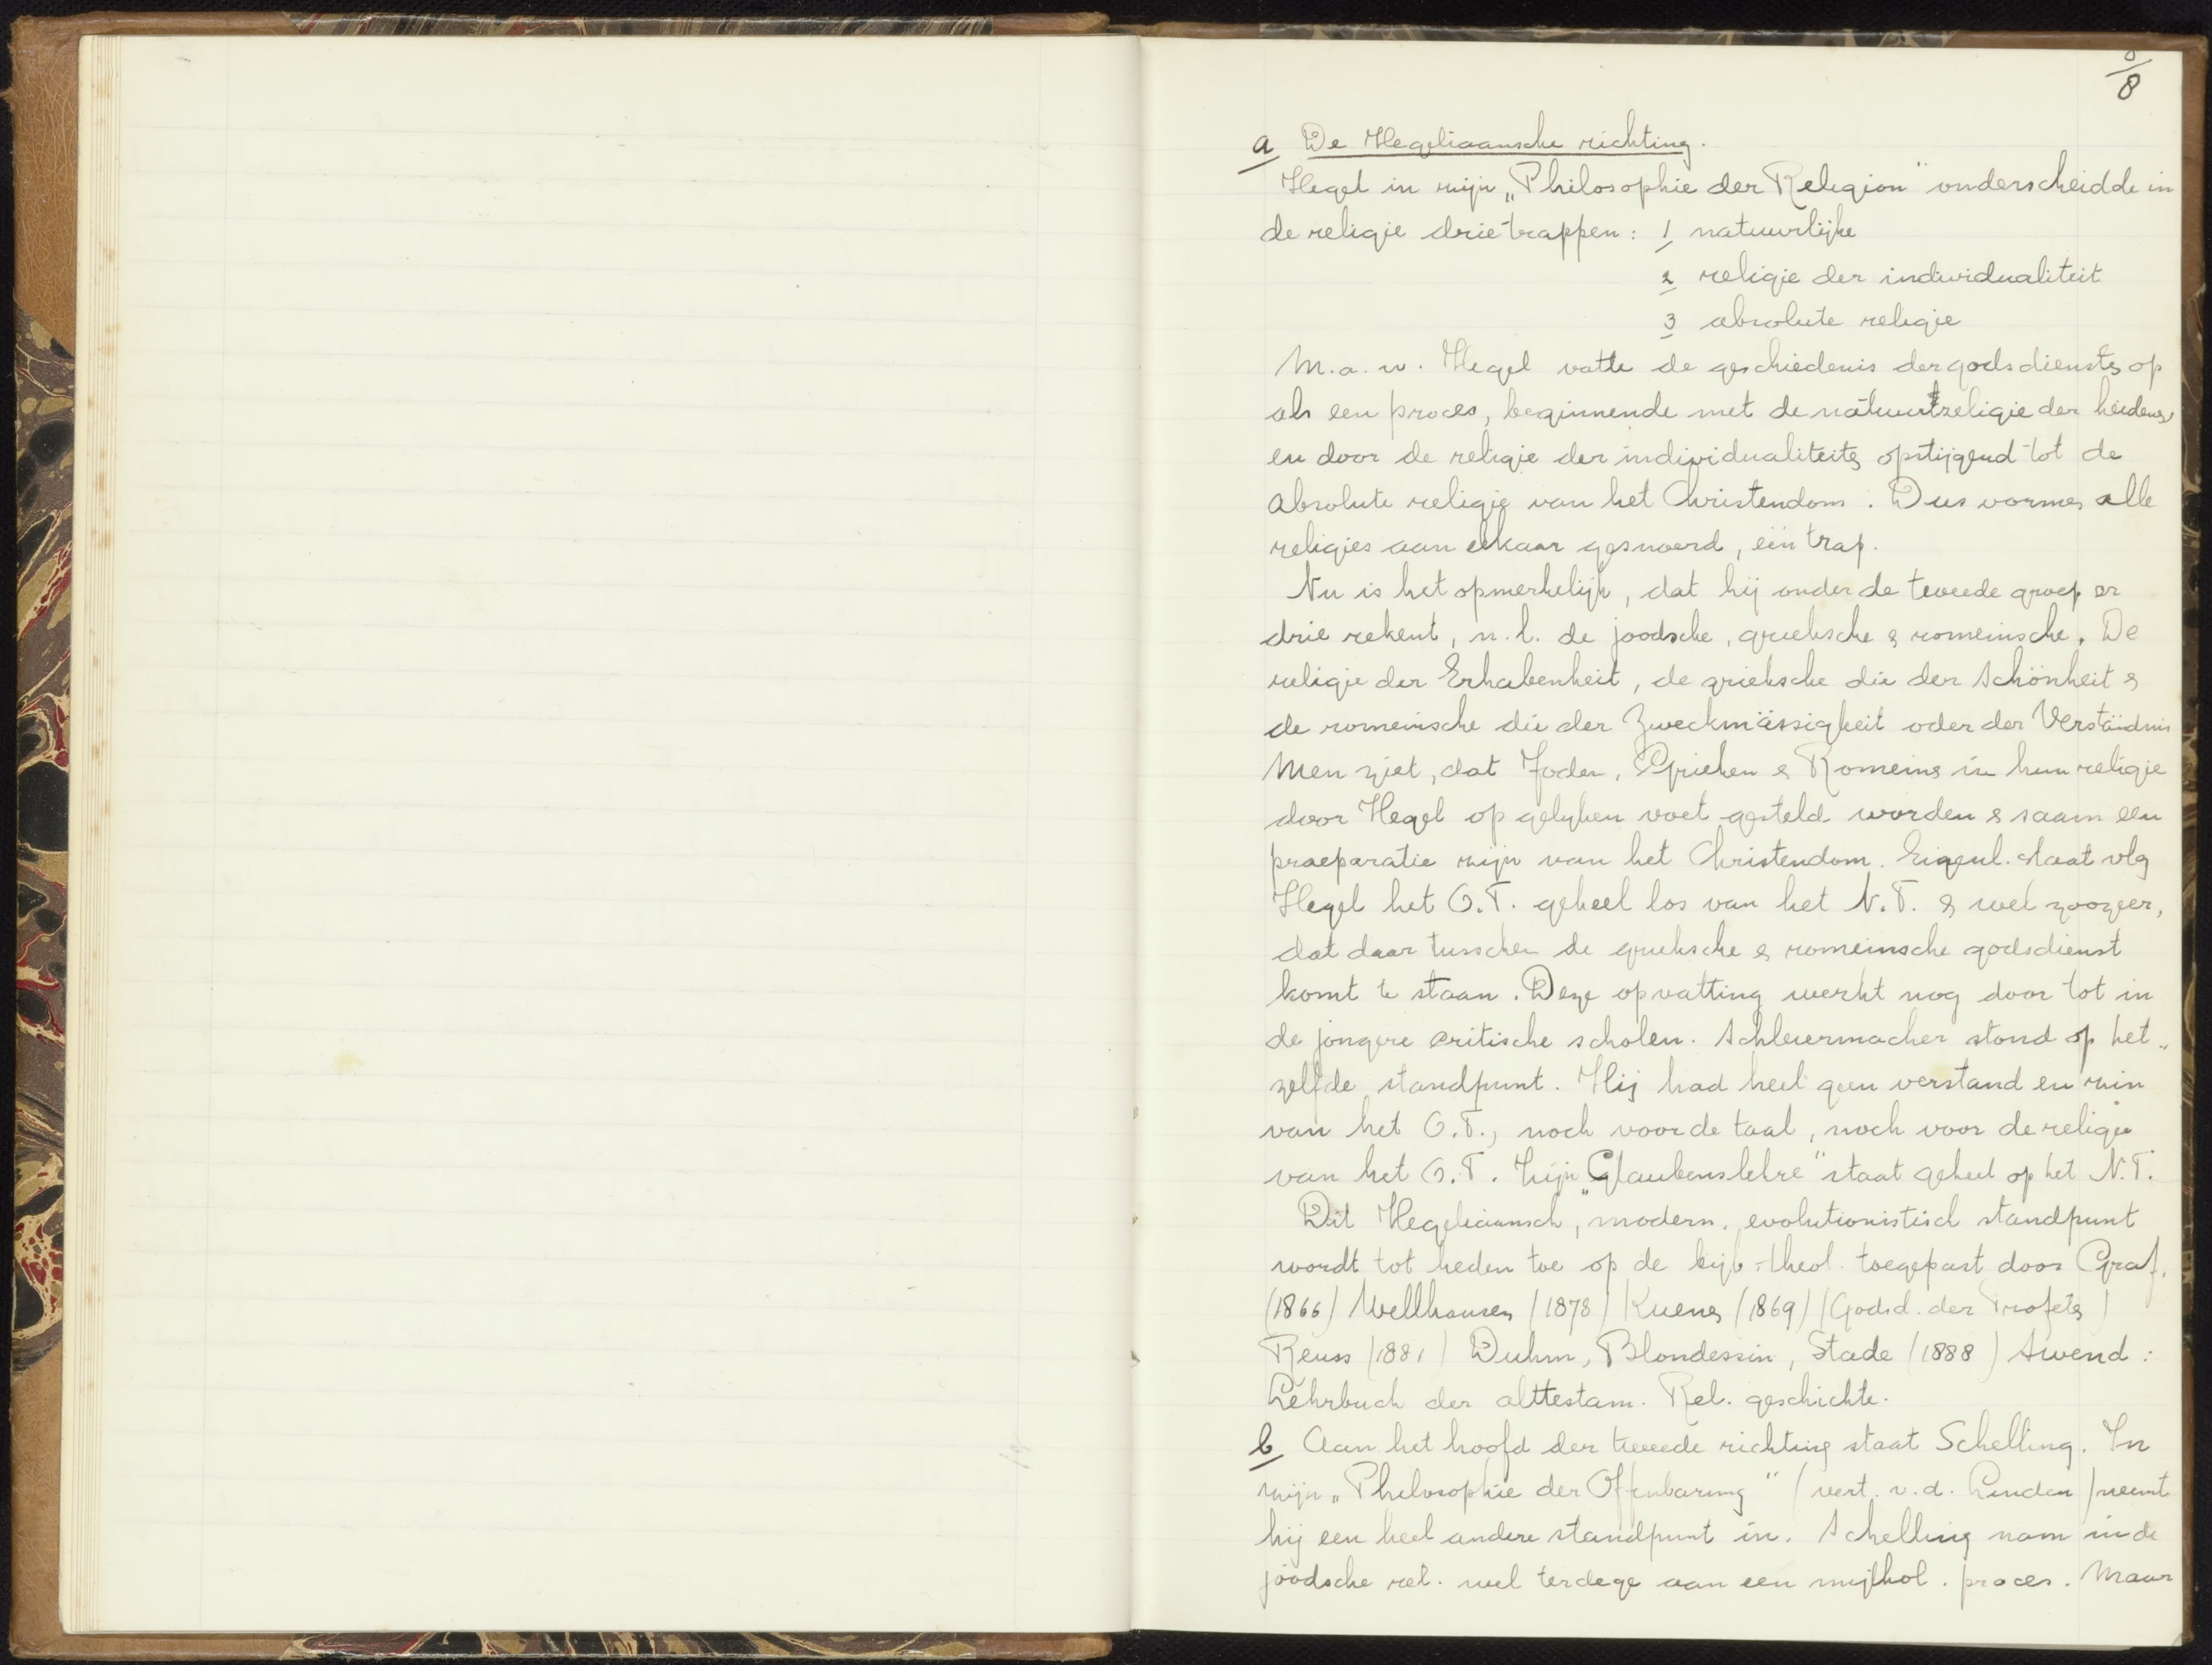 8
a De Hegeliaansche richting.
Hegel in zijn „Philosophie der Religion" onderscheidde in
de religie drie trappen: 1 natuurlijke
2 religie der individualiteit
3 absolute religie
M.a.w. Hegel vatte de geschiedenis der godsdiensten op
als een proces, beginnende met de natuurreligie der heidenen,
en door de religie der individualiteiten opstijgend tot de
absolute religie van het Christendom. Dus vormen alle
religies aan elkaar gesnoerd, één trap.
Nu is het opmerkelijk, dat hij onder de tweede groep er
drie rekent, n.l. de joodsche, grieksche & romeinsche. De
religie der Erhabenheit, de grieksche die der Schönheit &
de romeinsche die der Zweckmässigkeit oder der Verständnis
Men ziet, dat Joden, Grieken & Romeinen in hun religie
door Hegel op gelyken voet gesteld worden & saam een
praeparatie zijn van het Christendom. Eigenl. staat vlg
Hegel het O.T. geheel los van het N.T. & wel zoozeer,
dat daar tusschen de grieksche & romeinsche godsdienst
komt te staan. Deze opvatting werkt nog door tot in
de jongere critische scholen. Schleiermacher stond op het-
zelfde standpunt. Hij had heel geen verstand en zin
van het O.T., noch voor de taal, noch voor de religie
van het O.T. Zijn „Glaubenslehre" staat geheel op het N.T.
Dit Hegeliaansch, modern, evolutionistisch standpunt
wordt tot heden toe op de bijb-theol. toegepast door Graf.
(1866) Wellhausen (1878) Kuenen (1869) (Godsd. der Profeten)
Reuss (1881) Duhm, Blondessin, Stade (1888) Smend:
Lehrbuch der alttestam. Rel. geschichte.
b Aan het hoofd der tweede richting staat Schelling. In
zijn „Philosophie der Offenbarung" (vert. v.d. Linden) neemt
hij een heel andere standpunt in. Schelling nam in de
joodsche rel. wel terdege aan een mythol. proces. Maar